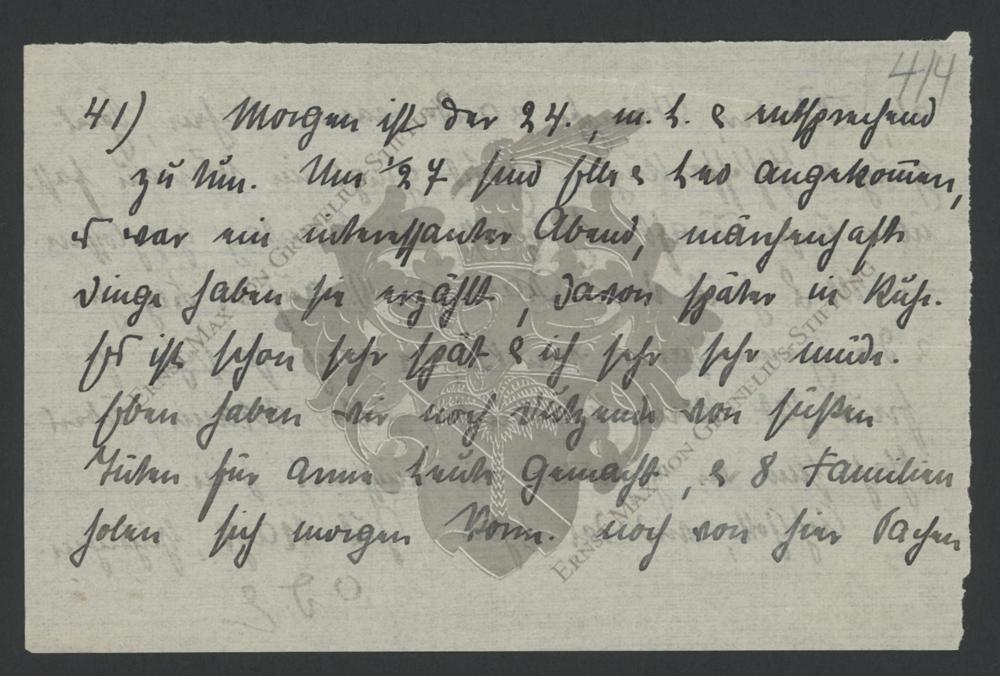 4/4
41) Morgen ist der 24., m. L. & entsprechend
zu tun. Um 1/2 7 sind Elle & Leo angekom̅en,
es war ein interessanter Abend, märchenhafte
Dinge haben sie erzählt, davon später in Ruhe.
Es ist schon sehr spät & ich sehr sehr müde.
Eben haben wir noch dutzende von süßen
Tüten für arme Leute gemacht, & 8 Familien
holen sich morgen Vorm. noch von hier Sachen
ERNST MAX VON GRUNELIUS-STIFTUNG
ERNST MAX VON GRUNELIUS-STIFTUNG